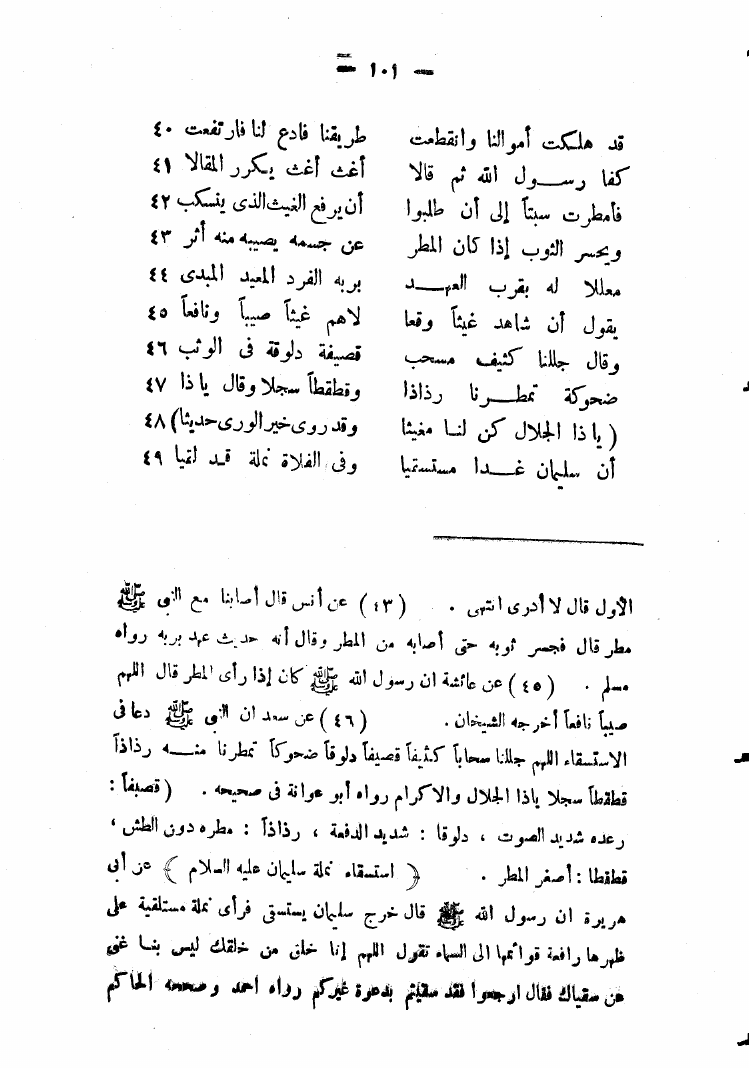 — ١٠١ —
قد هلكت أموالنا وانقطعت طريقنا فادع لنا فارتفعت ٤٠
كفا رسول الله ثم قالا أغث أغث يكرر المقالا ٤١
فأمطرت سبتاً إلى أن طلبوا أن يرفع الغيث الذى ينسكب ٤٢
ويحسر الثوب إذا كان المطر عن جسمه يصيبه منه أثر ٤٣
معللا له بقرب العهد بربه الفرد المعيد المبدى ٤٤
يقول أن شاهد غيثاً وقعا لاهم غيثاً صيباً ونافعاً ٤٥
وقال جللنا كثيف مسحب قصيفة دلوقة فى الوثب ٤٦
ضحوكة تمطرنا رذاذا وقطقطاً سجلا وقال ياذا ٤٧
( ياذا الجلال كن لنا مغيثا وقد روى خير الورى حديثا) ٤٨
أن سليمان غدا مستسقيا وفى الفلاة نملة قد لقيا ٤٩
الأول قال لا أدرى انتهى . (٤٣) عن أنس قال أصابنا مع النبى ﷺ
مطر قال فحسر ثوبه حتى أصابه من المطر وقال أنه حديث عهد بربه رواه
مسلم . (٤٥) عن عائشة ان رسول الله ﷺ كان إذا رأى المطر قال اللهم
صيباً نافعاً أخرجه الشيخان . (٤٦) عن سعد ان النبى ﷺ دعا فى
الاستسقاء اللهم جللنا سحاباً كثيفاً قصيفاً دلوقاً ضحوكاً تمطرنا منه رذاذاً
قطقطاً سجلا ياذا الجلال والاكرام رواه أبو عوانة فى صحيحه . ( قصيفاً :
رعده شديد الصوت ، دلوقا : شديد الدفعة ، رذاذاً : مطره دون الطش ،
قطقطا : أصغر المطر . ( استسقاء نملة سليمان عليه السلام ) عن أبى
هريرة ان رسول الله ﷺ قال خرج سليمان يستسقى فرأى نملة مستلقية على
ظهرها رافعة قوائمها الى السماء تقول اللهم إنا خلق من خلقك ليس بنا غنى
عن سقياك فقال ارجعوا فقد سقيتم بدعوة غيركم رواه احمد وصححه الحاكم